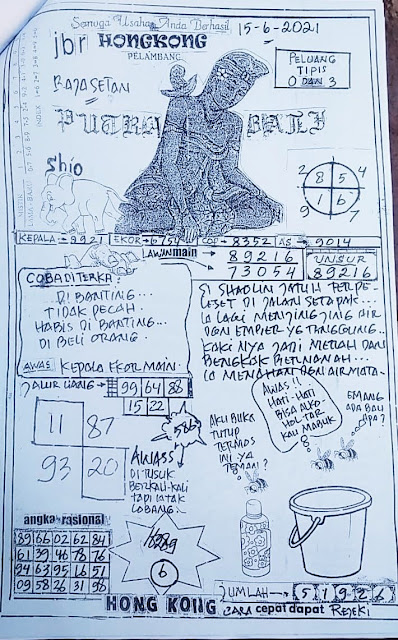 Semoga Usaha Anda Berhasil
15-6-2021
jbr HONGKONG
PELAMBANG
RAJA SETAN
PELUANG
TIPIS
0 DAN 3
PUTRA BALI
shio
2 8 5 4
7 1 6 9
KEPALA → 9921 EKOR → 6754 COP → 8352 AS → 9014
LAWAN main 89216
73054
UNSUR
89216
COBA DITERKA:
DI BANTING...
TIDAK PECAH.
HABIS DI BANTING...
DI BELI ORANG.
AWAS KEPALA EKOR MAIN.
SI SHAOLIN JATUH TERPE-
LESET DI JALAN SETAPAK...
IA LAGI MENJINJING AIR
DGN EMBER YG TANGGUNG..
KAKI NYA JADI MERAH DAN
BENGKOK BERNANAH...
IA MENAHAN DGN AIR MATA.
JALUR UANG → 99 64 88
15 22
586
11 87
93 20
AWASS
DI TUSUK
BERKALI-KALI
TAPI TATAK
LOBANG.
AKU BUKA
TUTUP
TERMOS
INI YA
TEMAN!
AWAS!!
HATI-HATI
BISA ALKO-
HOL TAR
KAU MABUK
EMANG
APA BAU
APA?
angka rasional
89 66 02 62 84
61 39 46 78 76
24 63 95 16 51
09 58 26 31 98
6
JUMLAH → 5 1 9 2 6
HONG KONG CARA cepat dapat REJEKI